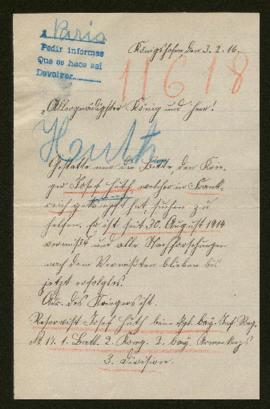 A Paris
Pedir informes
Que es hace así
Devolver
Königshofen, den 3. 2. 16.
11618
Allergnädigster König und Herr!
Huth
Gestatte mir die Bitte, den
Josef Huth, welcher in Frank-
reich gekämpft hat, suchen zu
helfen. Er ist seit 30. August 1914
vermißt und alle Nachforschungen
nach dem Vermißten blieben bis
jetzt erfolglos.
des Kriegers ist.
Reservist Josef Huth bay. Inf. Reg.
No 11. 1. Batl. 2. Komp. 3. bay. Armeekorps
3. Division.